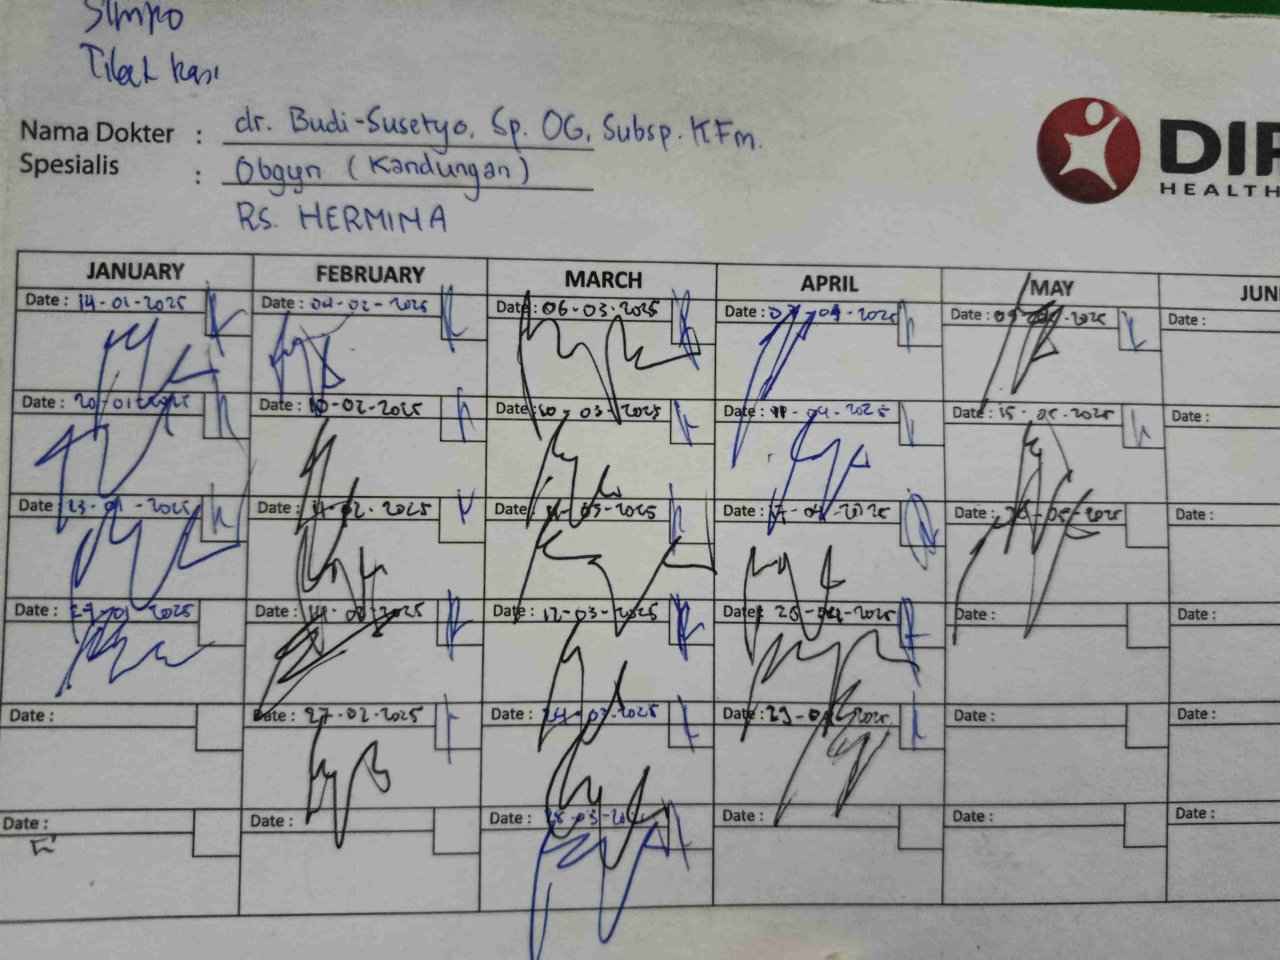 Simpo
Tilak Kasi
Nama Dokter : dr. Budi-Susetyo, Sp. OG, Subsp. KFm.
Spesialis : Obgyn (Kandungan)
RS. HERMINA
DIR
HEALTH
JANUARY FEBRUARY MARCH APRIL MAY JUN
Date : 14-01-2025 Date : 04-02-2025 Date : 06-03-2025 Date : 07-04-2025 Date : 2025 Date :
Date : 20-01-2025 Date : 10-02-2025 Date : 10-03-2025 Date : 11-04-2025 Date : 15-05-2025 Date :
Date : 23-01-2025 Date : 02-2025 Date : 03-2025 Date : 17-04-2025 Date : 05-2025 Date :
Date : 27-01-2025 Date : 2025 Date : 12-03-2025 Date : 2025 Date : Date :
Date : Date : 27-02-2025 Date : 24-03-2025 Date : 2025 Date : Date :
Date : Date : Date : Date : Date : Date :